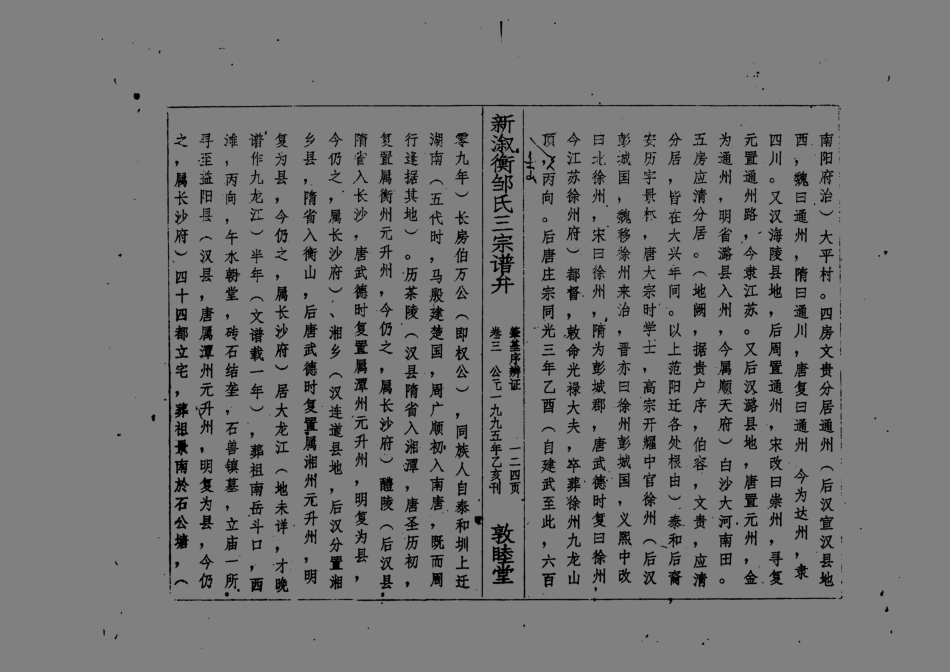 南阳府治）大平村。四房文贵分居通州（后汉宣汉县地
西，魏曰通州，隋曰通川，唐复曰通州　今为达州，隶
四川。又汉海陵县地，后周置通州，宋改曰崇州，寻复
元置通州路，今隶江苏。又后汉潞县地，唐置元州，金
为通州，明省潞县入州，今属顺天府）白沙大河南田。
五房应清分居。（地阙，据贵户序，伯容，文贵，应清
分居，皆在大兴年间。以上范阳迁各处根由）泰和后裔
安历字景标，唐大宗时学士，高宗开耀中官徐州（后汉
彭城国，魏移徐州来治，晋亦曰徐州彭城国，义熙中改
曰北徐州，宋曰徐州，隋为彭城郡，唐武德时复曰徐州，
今江苏徐州府）都督，敕命光禄大夫，卒葬徐州九龙山
顶，丙向。后唐庄宗同光三年乙酉（自建武至此，六百
新溆衡邹氏三宗谱弁
鳌基序辨证
卷三　公元一九九五年乙亥刊
一二四页
敦睦堂
零九年）长房伯万公（即权公），同族人自泰和圳上迁
湖南（五代时，马殷建楚国，周广顺初入南唐，既而周
行逢据其地）。历茶陵（汉县隋省入湘潭，唐圣历初，
复置属衡州元升州，今仍之，属长沙府）醴陵（后汉县
隋省入长沙，唐武德时复置属潭州元升州，明复为县，
今仍之，属长沙府）、湘乡（汉连道县地，后汉分置湘
乡县，隋省入衡山，后唐武德时复置属湘州元升州，明
复为县，今仍之，属长沙府）居大龙江（地未详，才晚
谱作九龙江）半年（文谱载一年），葬祖南岳斗口，西
滩，丙向，午水朝堂，砖石结垄，石兽镇墓，立庙一所。
寻至益阳县（汉县，唐属潭州元升州，明复为县，今仍
之，属长沙府）四十四都立宅，葬祖景南於石公塘，（